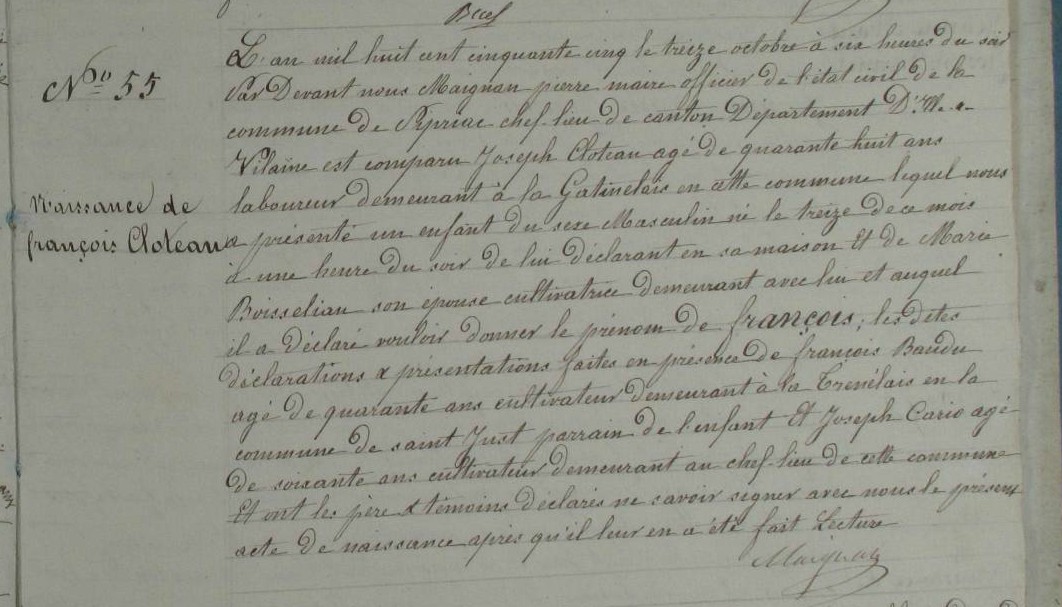 No 55
Naissance de
françois Cloteau
L'an mil huit cent cinquante cinq le treize octobre à six heures du soir
Par Devant nous Maignan pierre maire officier de l'état civil de la
commune de Pipriac chef-lieu de canton Département D'Ille &
Vilaine est comparu Joseph Cloteau agé de quarante huit ans
laboureur demeurant à la Gatinelais en cette commune lequel nous
a présenté un enfant du sexe Masculin né le treize de ce mois
à une heure du soir de lui déclarant en sa maison Et de Marie
Boisseliau son épouse cultivatrice demeurant avec lui et auquel
il a déclaré vouloir donner le prénom de françois; les dites
déclarations & présentations faites en présence de françois Baudu
agé de quarante ans cultivateur demeurant à la Trenélais en la
commune de saint Just parrain de l'enfant Et Joseph Cario agé
de soixante ans cultivateur demeurant au chef-lieu de cette commune
Et ont les père & témoins déclarés ne savoir signer avec nous le présent
acte de naissance après qu'il leur en a été fait Lecture
Maignan